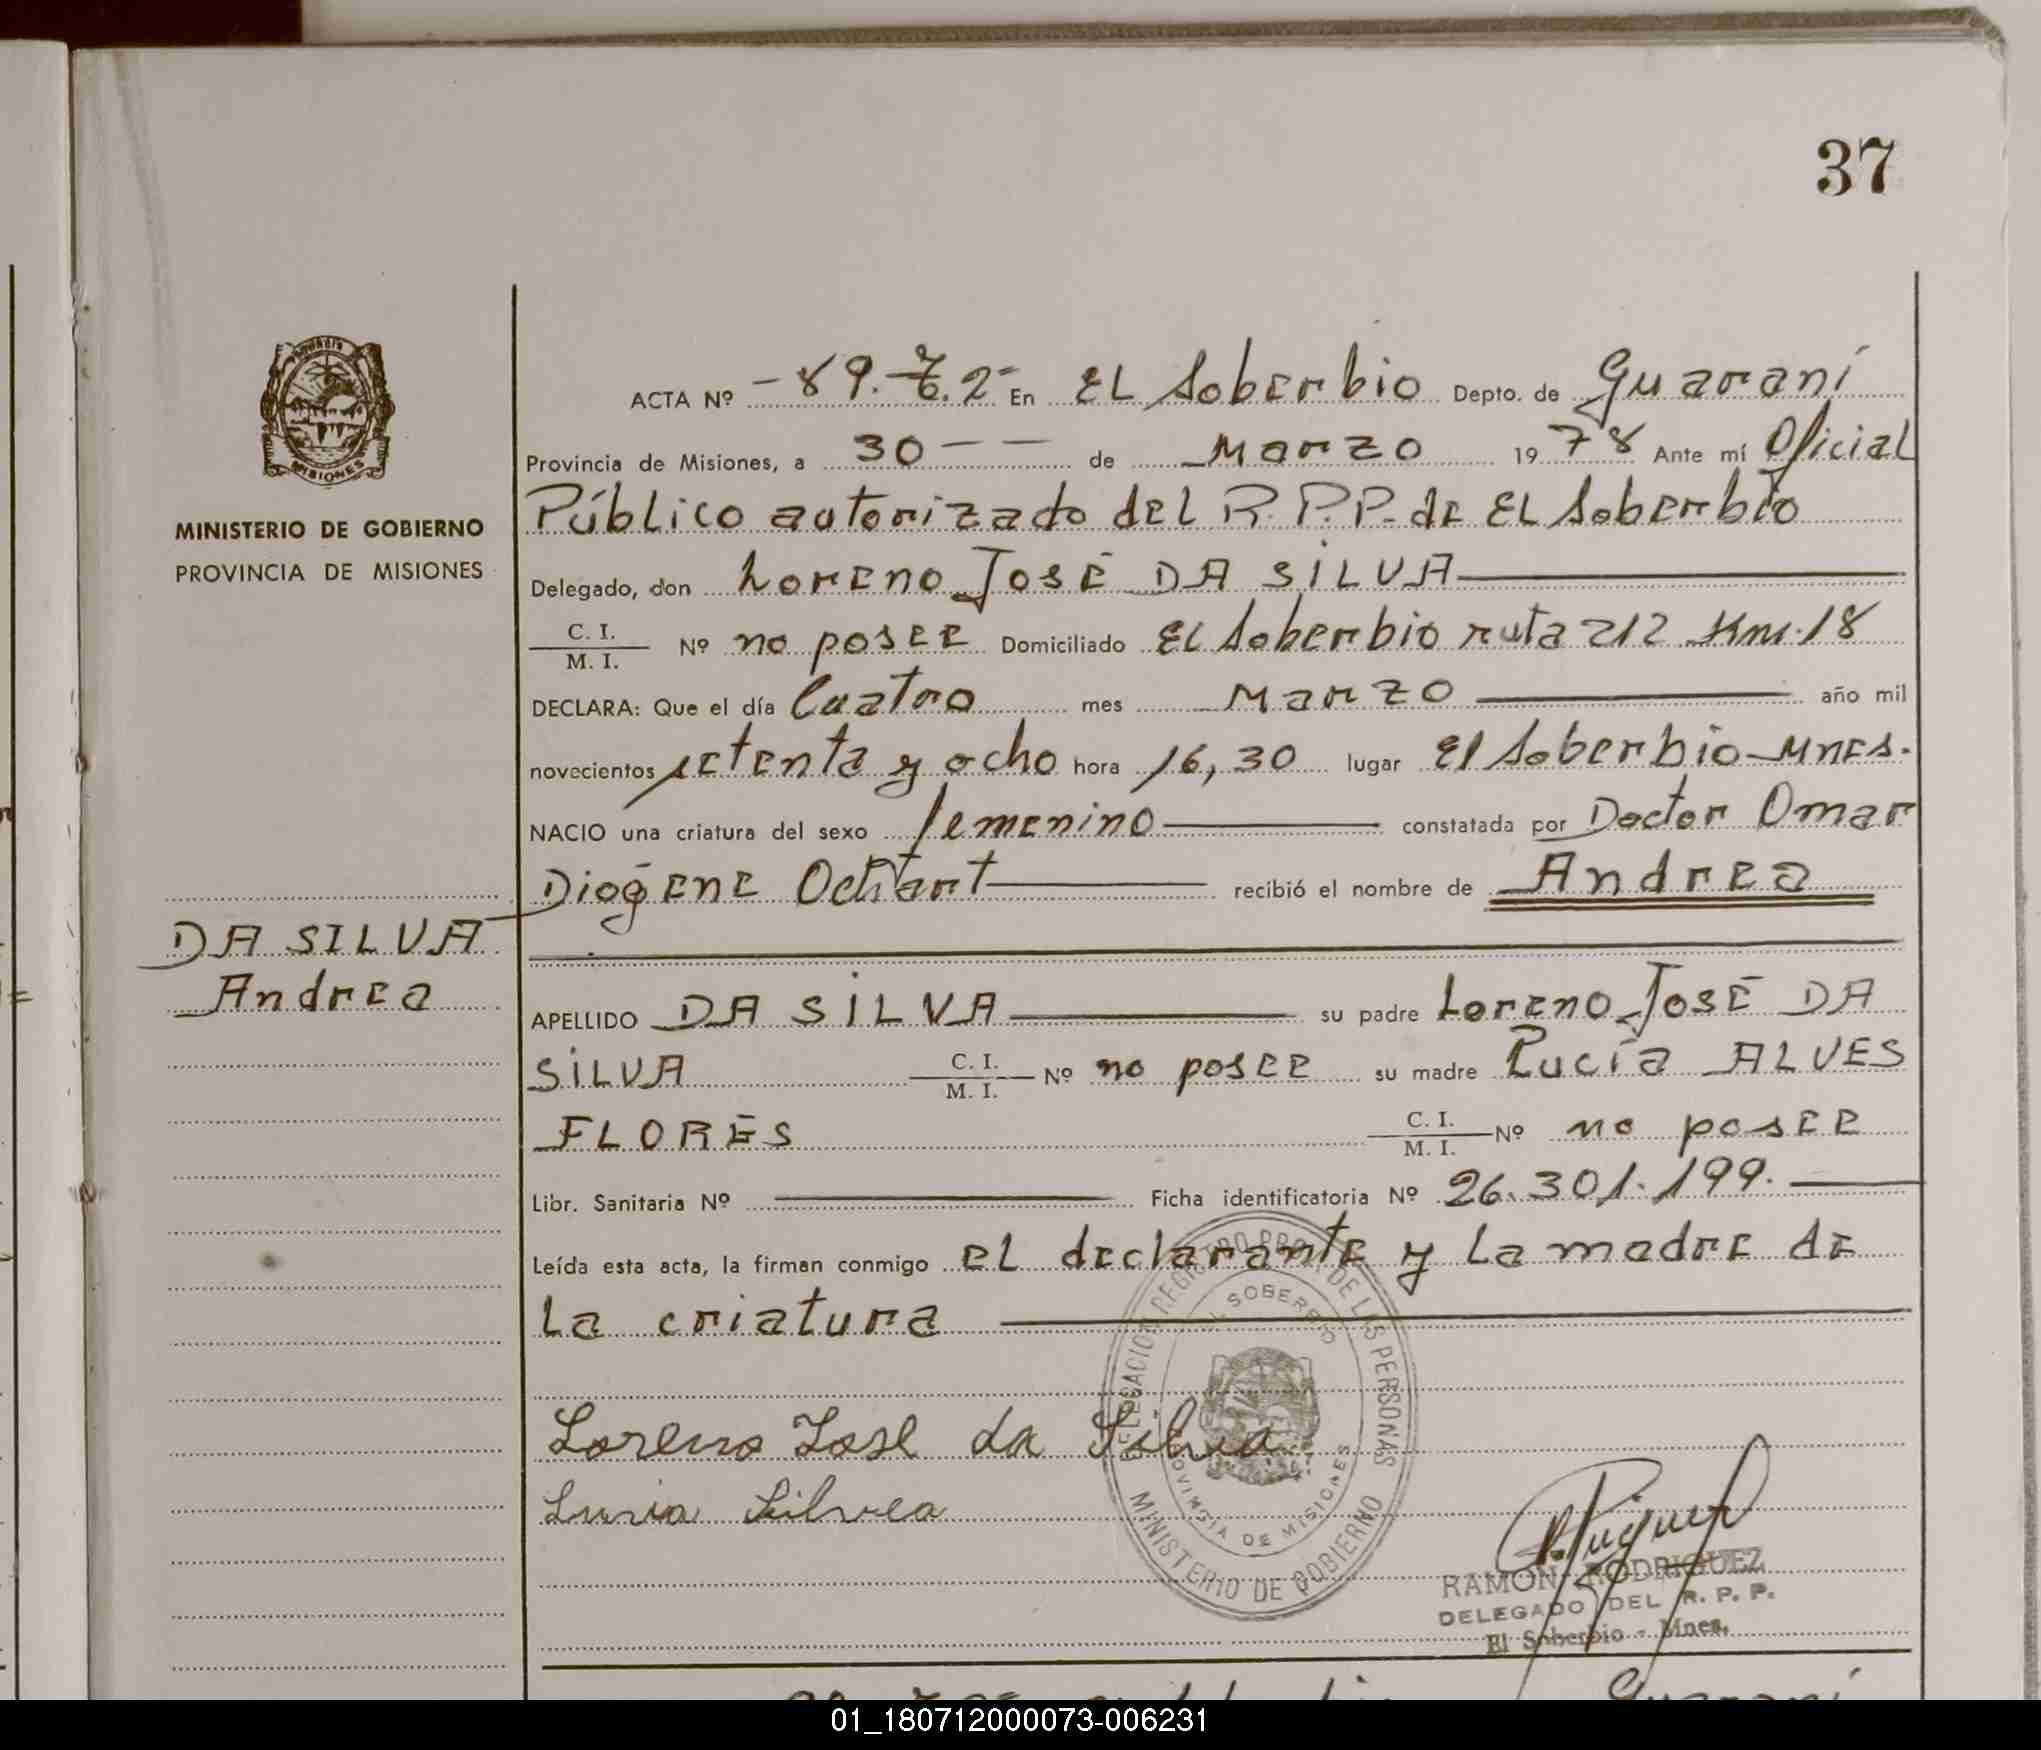 37
MISIONES
MINISTERIO DE GOBIERNO
PROVINCIA DE MISIONES
DA SILVA
Andrea
ACTA Nº -89.T.2- En EL Soberbio Depto. de Guaraní
Provincia de Misiones, a 30 - - de Marzo 1978 Ante mí Oficial
Público autorizado del R.P.P. de EL Soberbio
Delegado, don Loreno José DA SILVA
C. I.
M. I. Nº no posee Domiciliado EL Soberbio ruta 212 Km. 18
DECLARA: Que el día Cuatro mes Marzo año mil
novecientos setenta y ocho hora 16,30 lugar El Soberbio-Mnes.
NACIO una criatura del sexo femenino constatada por Doctor Omar
Diógene recibió el nombre de Andrea
APELLIDO DA SILVA su padre Loreno José DA
SILVA C. I. M. I. Nº no posee su madre Lucía ALVES
FLORES C. I. M. I. Nº no posee
Libr. Sanitaria Nº Ficha identificatoria Nº 26.301.199.
Leída esta acta, la firman conmigo el declarante y la madre de
la criatura
Loreno Jose da Silva
Silvea
DELEGACION REGISTRO PROV. DE LAS PERSONAS
EL SOBERBIO
PROVINCIA DE MISIONES
MINISTERIO DE GOBIERNO
RAMON RODRIGUEZ
DELEGADO DEL R. P. P.
El Soberbio - Mnes.
Guaraní
01_180712000073-006231